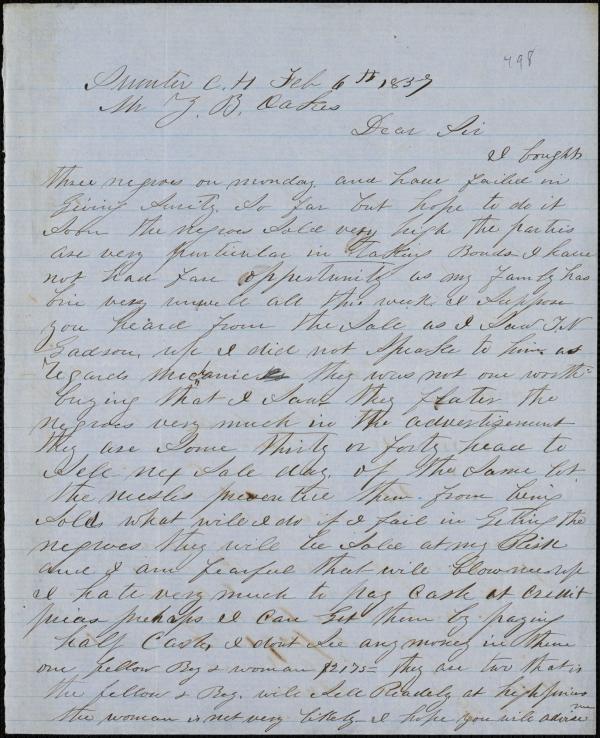 498
Sumter C. H Feb 6th 1857
Mr Z. B. Oakes
Dear Sir
I bought
three negroes on monday and have failed in
giving Surity So far but hope to do it
Soon the negroes Sold very high the parties
are very perticular in taking Bonds I have
not had fare opportunity as my family has
bin very unwell all this week I Suppose
you heard from the Sale as I Saw T.N
Gadson up I did not Speake to him as
regards Mecanicks they was not one worth
buying that I Saw they flater the
negroes very much in the advertisement
they are Some thirty or forty head to
Sell nex Sale day of the Same lot
the meesles prevented them from being
Sold what will I do if I fail in geting the
negroes they will be Sold at my Risk
and I am fearful that will blow me up
I hate very much to pay Cash at Credit
prices prehaps I can get them by paying
half Cash, I dont See any money in them
one fellow Boy & woman $2175= they are two that is
the fellow & Boy, will Sell Readily at high prices
the woman is not very likely I hope you will advise
me